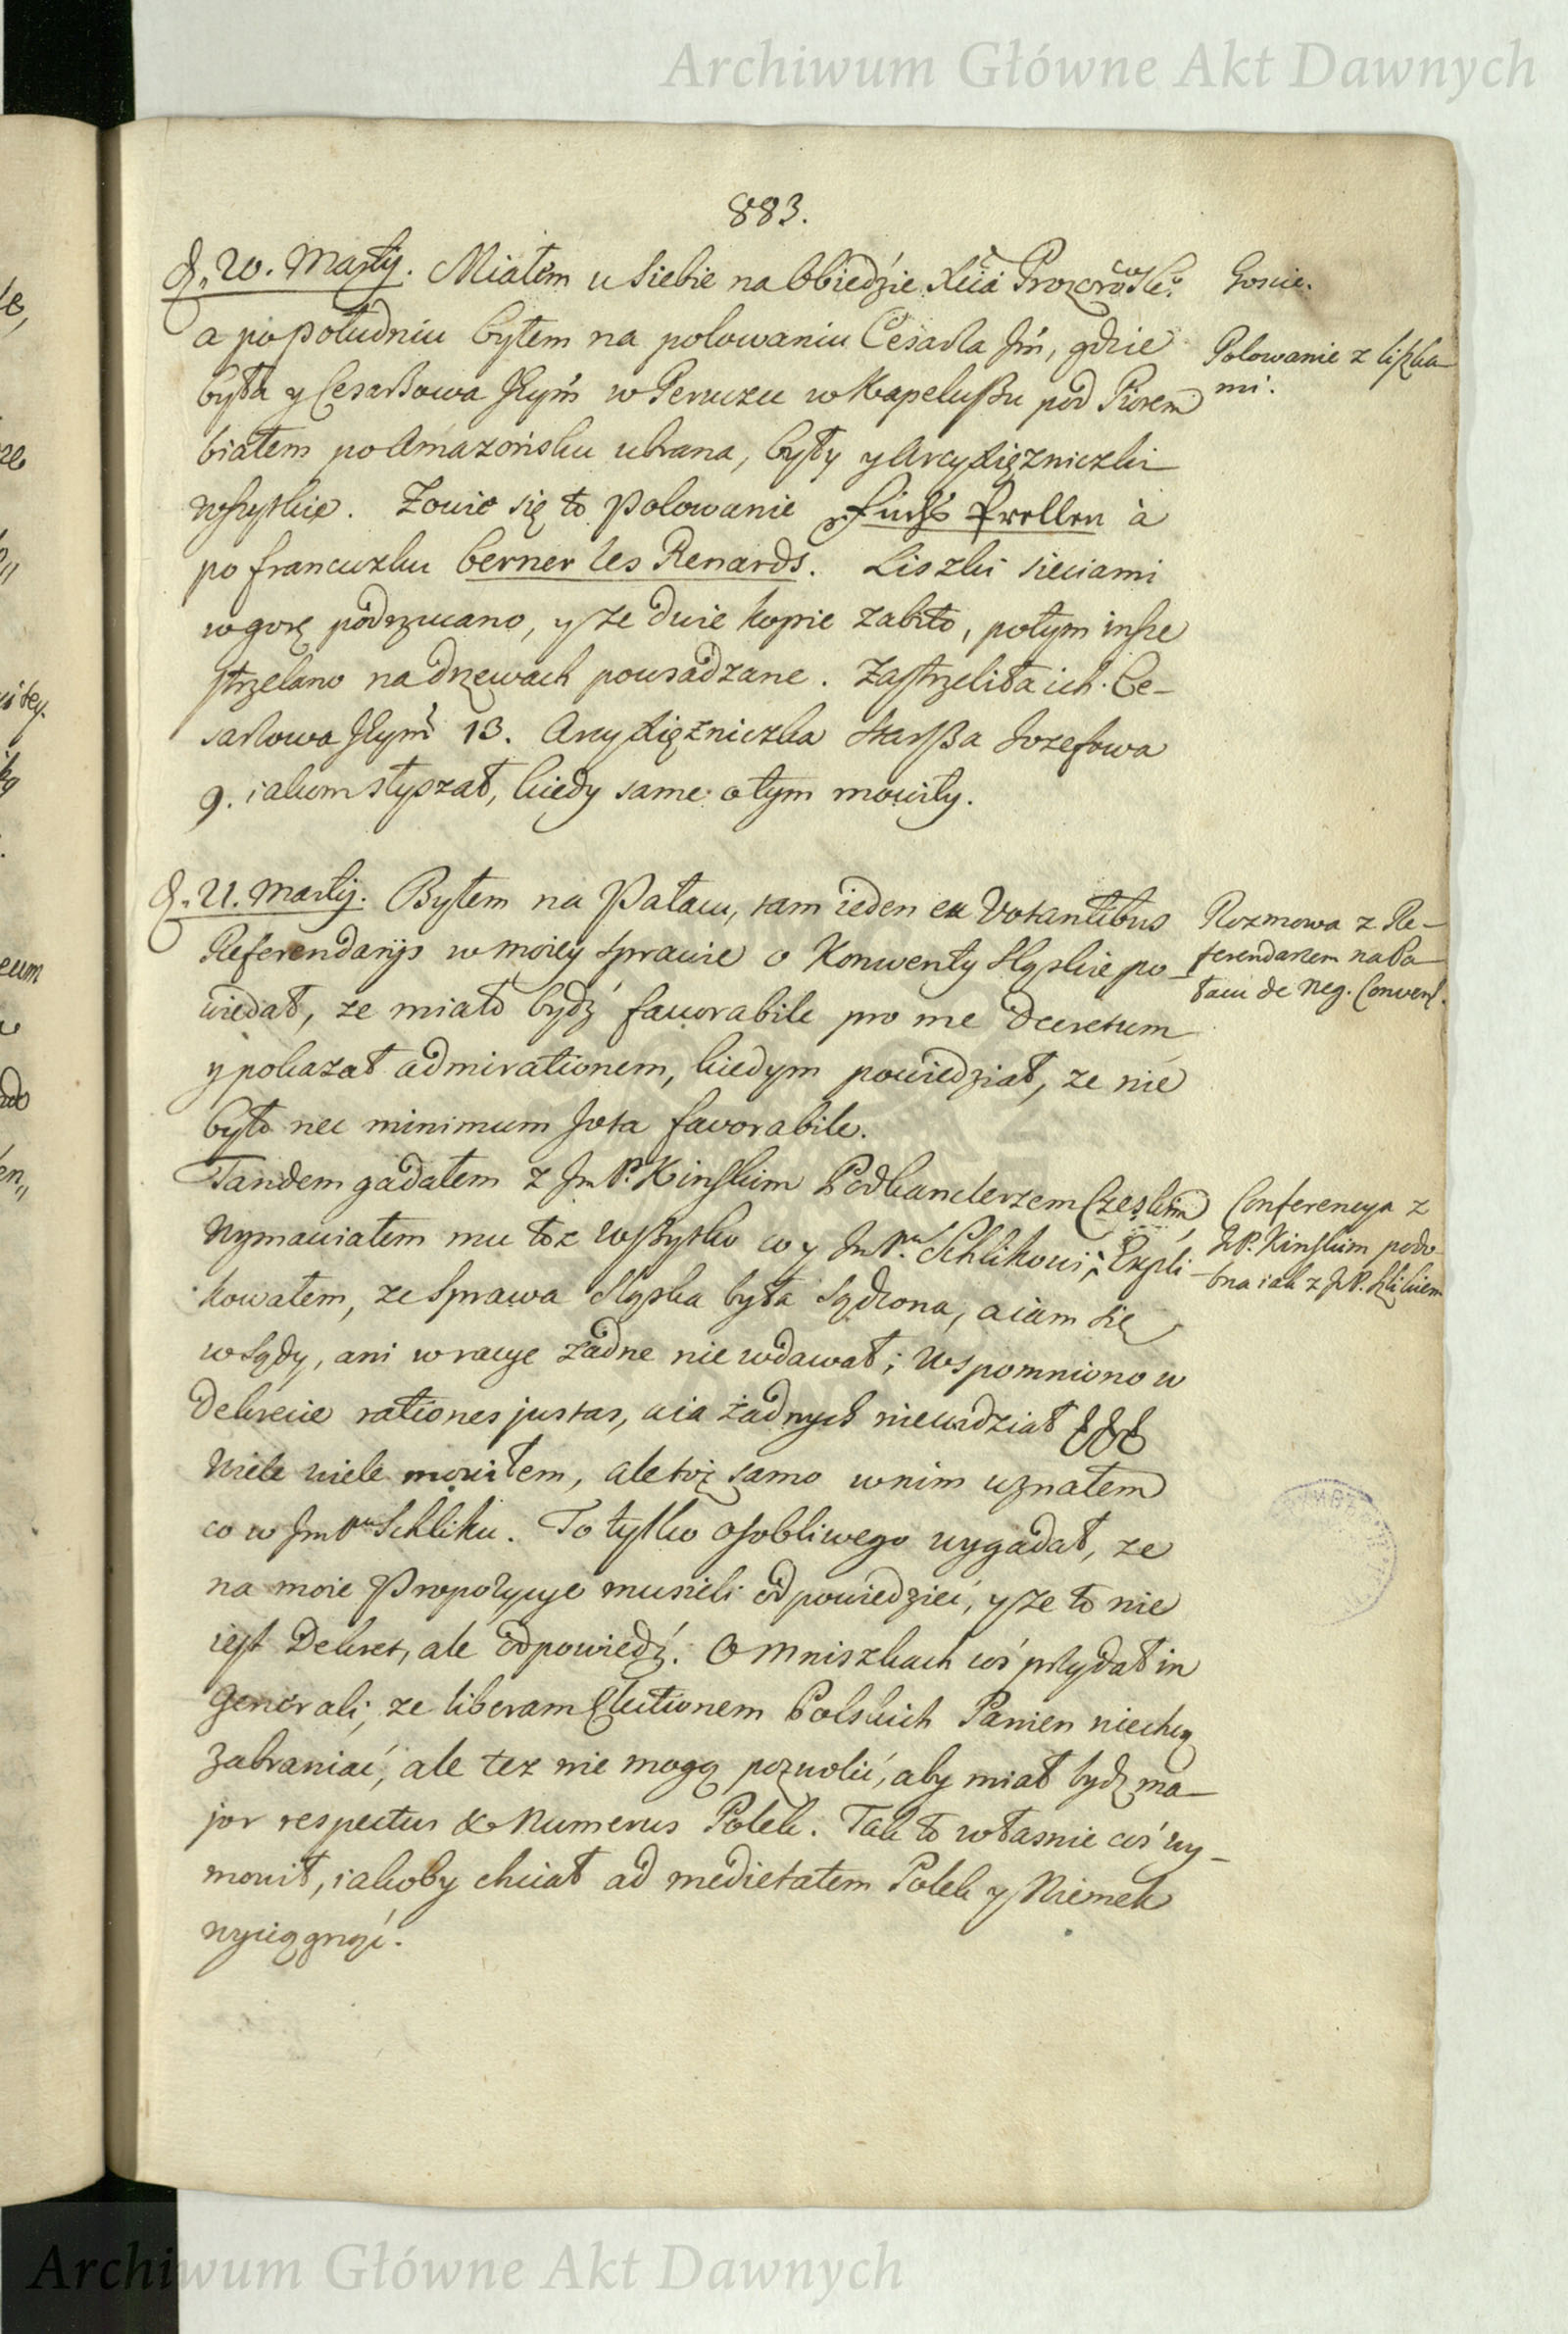 Archiwum Główne Akt Dawnych
883.
d. 20. Martij. Miałem u siebie na Obiedzie Xcia Prozorowsko
Goscie.
a po południu byłem na polowaniu Cesarza Jm̃, gdzie
Polowanie z liszka-
mi.
była y Cesarzowa Jeym̃ w Peruzcu w Kapeluszu pod Piorem
białem po Amazońsku ubrana, były y Arcyxiężniczki
wszytkie. Zowie się to Polowanie Fuchs Prellen à
po francuzku berner les Renards. Liszki sieciami
w gorę podrzucano, y ze dwie kopie zabito, potym insze
strzelano na drzewach powsadzane. Zastrzeliła ich Ce-
sarzowa Jeym̃ 13. Arcyxiężniczka starsza Jozefowa
9. iakom słyszał, kiedy same o tym mowiły.
d. 21. Martij. Byłem na Pałacu, tam ieden ex Votantibus
Rozmowa z Re-
Referendarijs w moiey sprawie o Konwenty Sląskie po-
ferendarzem na Pa-
wiedał, ze miało bydź favorabile pro me Decretum
łacu de Neg. Convent.
y pokazał admirationem, kiedym powiedział, ze nie
było nec minimum Jota favorabile.
Tandem gadałem z Jm P. Kinskim Podkanclerzem Czeskim
Conferencya z
Wymawiałem mu toż wszystko co y Jm Pu Schlikowi; Expli-
JP. Kinskim podo-
kowałem, ze sprawa Sląska była sądzona, a iam się
bna iak z JP. Szlikiem
w Sądy, ani w racye zadne nie wdawał; Wspomniono w
Dekrecie rationes justas, a ia żadnych nie widział &&&
Wiele wiele mowiłem, ale toż samo w nim uznałem
co w Jm Pu Schliku. To tylko osobliwego wygadał, ze
na moie Propozycye musieli odpowiedzieć, y ze to nie
iest Dekret, ale odpowiedź. O Mniszkach coś przydał in
Generali, ze liberam Electionem Polskich Panien niechcą
zabraniać, ale tez nie mogą pozwolić, aby miał bydz ma-
jor respectus & Numerus Polek. Tak to własnie coś wy-
mowił, iakoby chciał ad medietatem Polek y Niemek
wyciągnąć.
Archiwum Główne Akt Dawnych